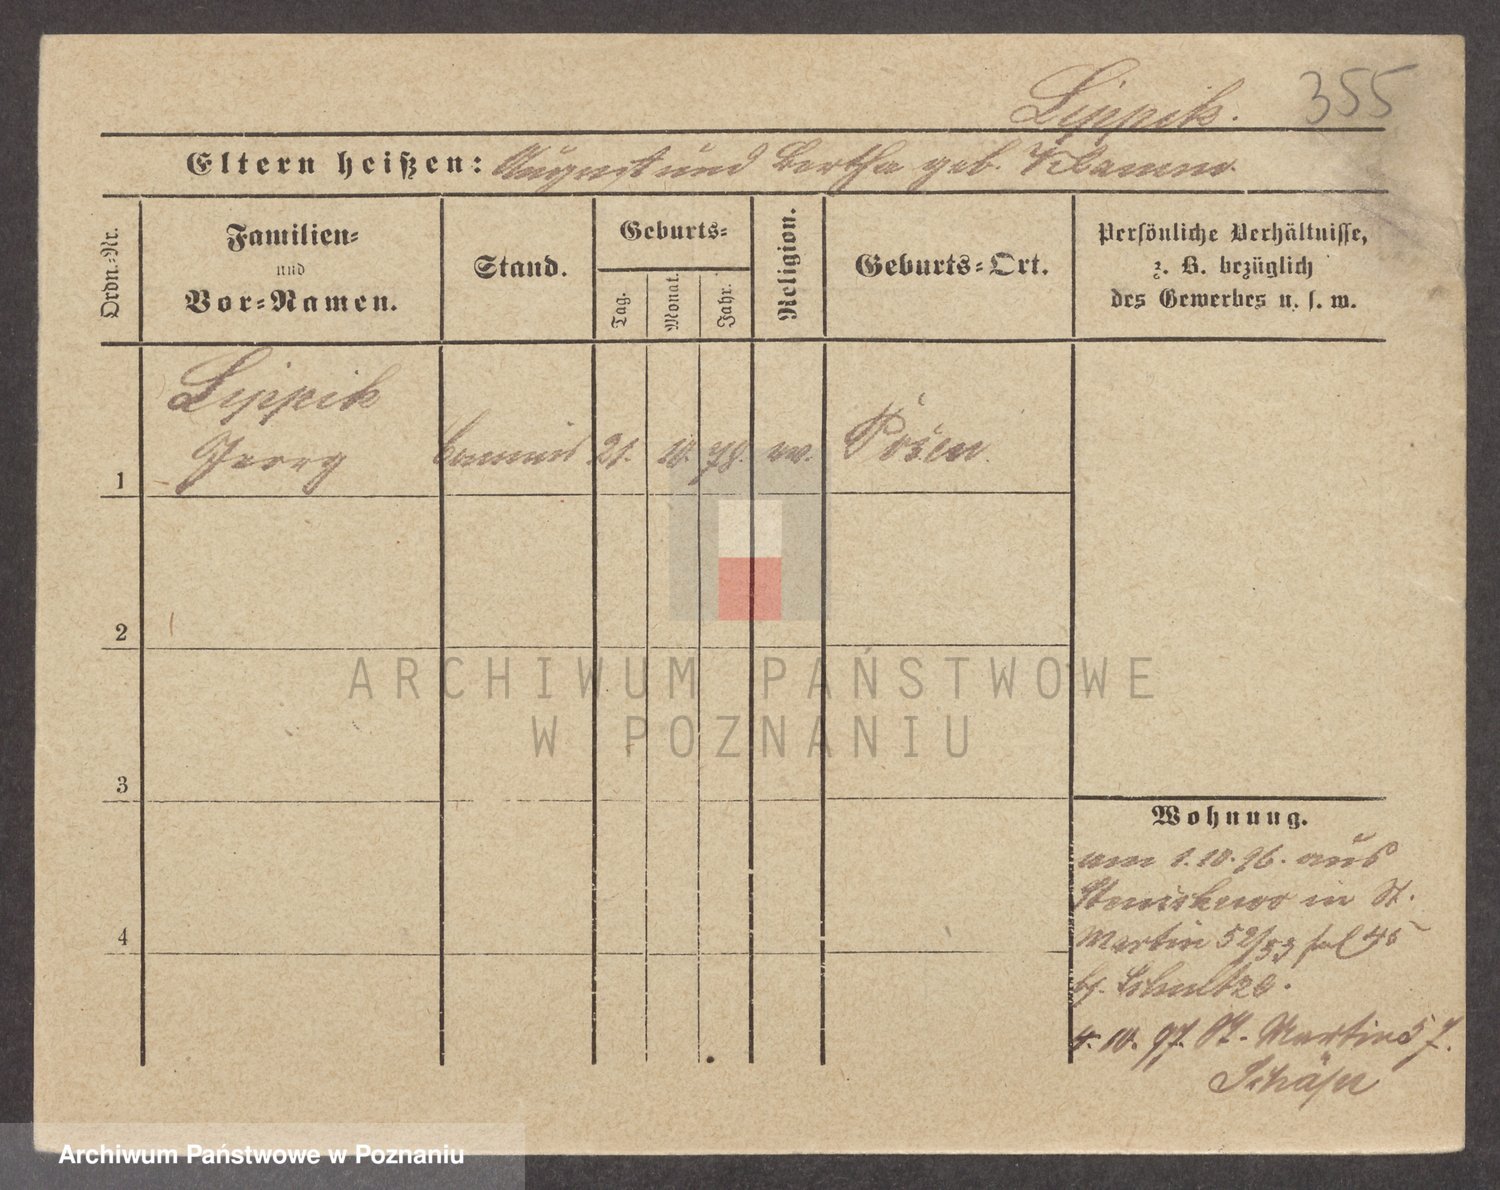 Lippik.
355
Eltern heißen: August und Bertha geb. Klamm.
Ordn.-Nr.
Familien-
und
Vor-Namen.
Stand.
Geburts-
Tag.
Monat.
Jahr.
Religion.
Geburts-Ort.
Persönliche Verhältnisse,
z. B. bezüglich
des Gewerbes u. s. w.
Lippik
1 Georg Commis 21. 10. 78. ev. Posen
2
3
4
Wohnung.
am 1.10.96. aus
in St.
Martin 52/53
bei Schultze.
4.10.97. St. Martin 57.
Schäfer
ARCHIWUM PAŃSTWOWE
W POZNANIU
Archiwum Państwowe w Poznaniu